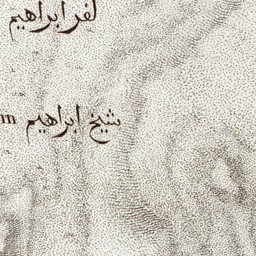 لفر ابراهيم
شيخ ابراهيم m